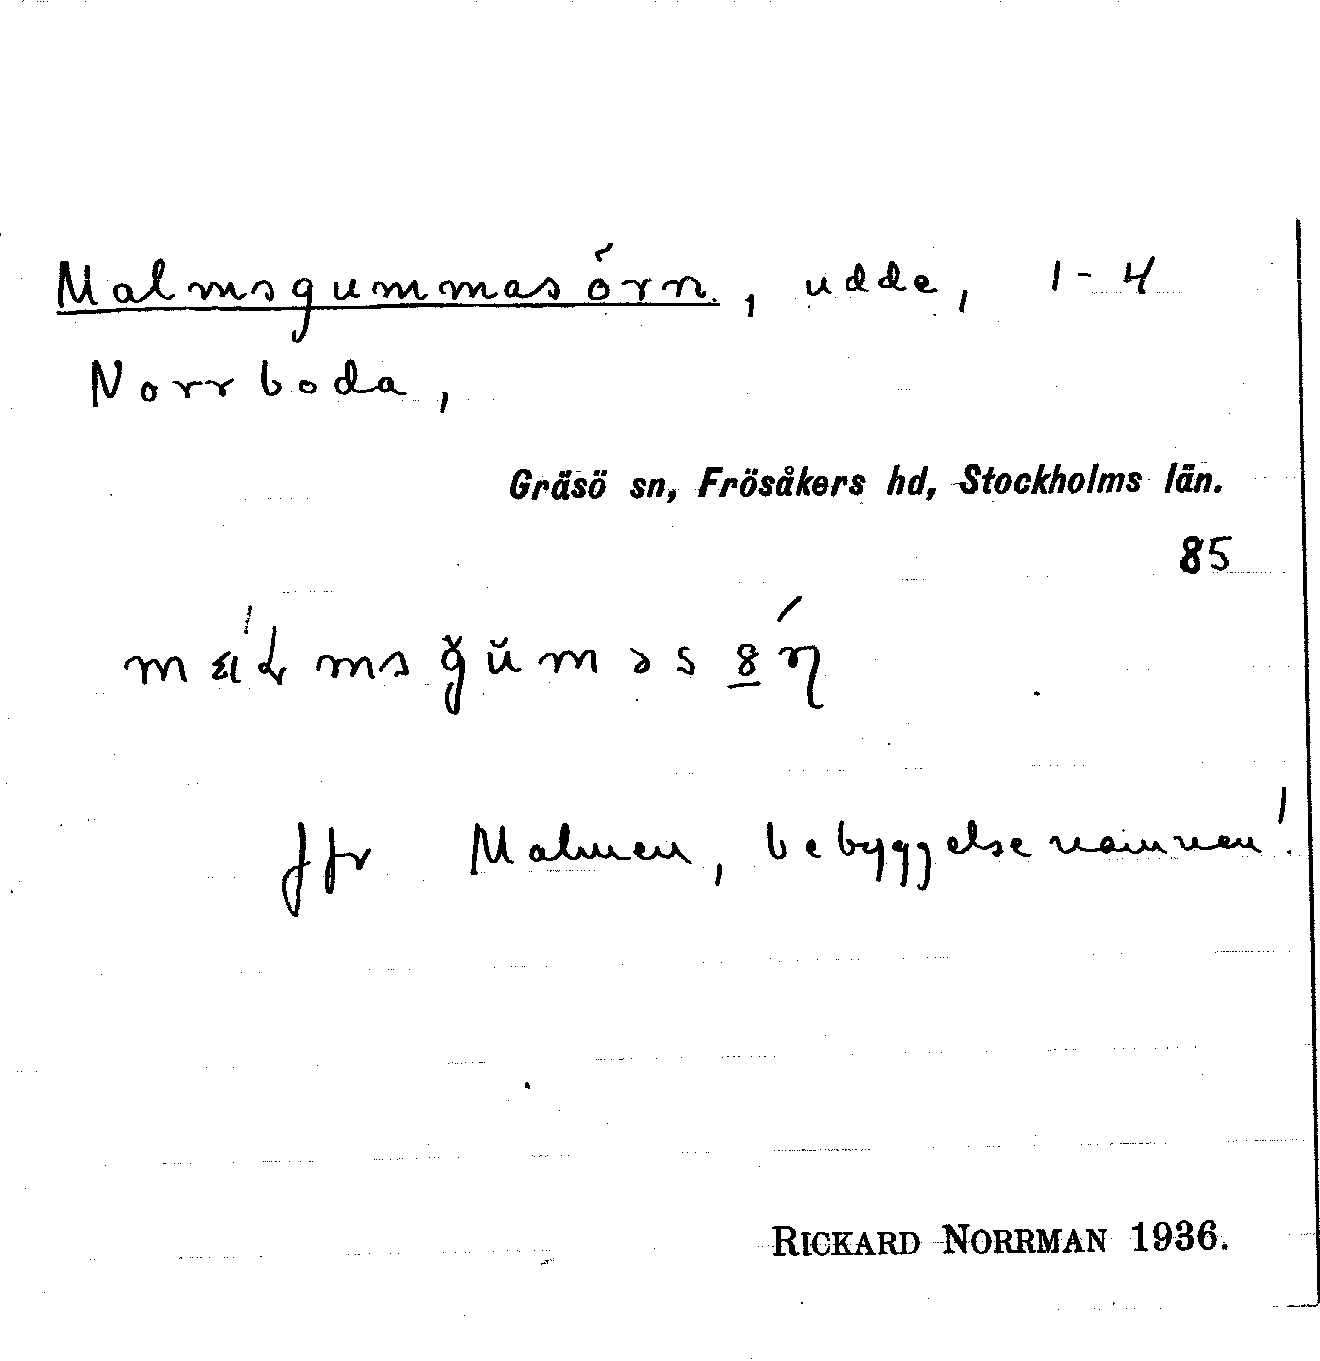 Malmsgummasörn, udde, 1-4
Norrboda,
Gräsö sn, Frösåkers hd, Stockholms län.
85
Jfr Malmen, bebyggelsenamnen!
RICKARD NORRMAN 1936.